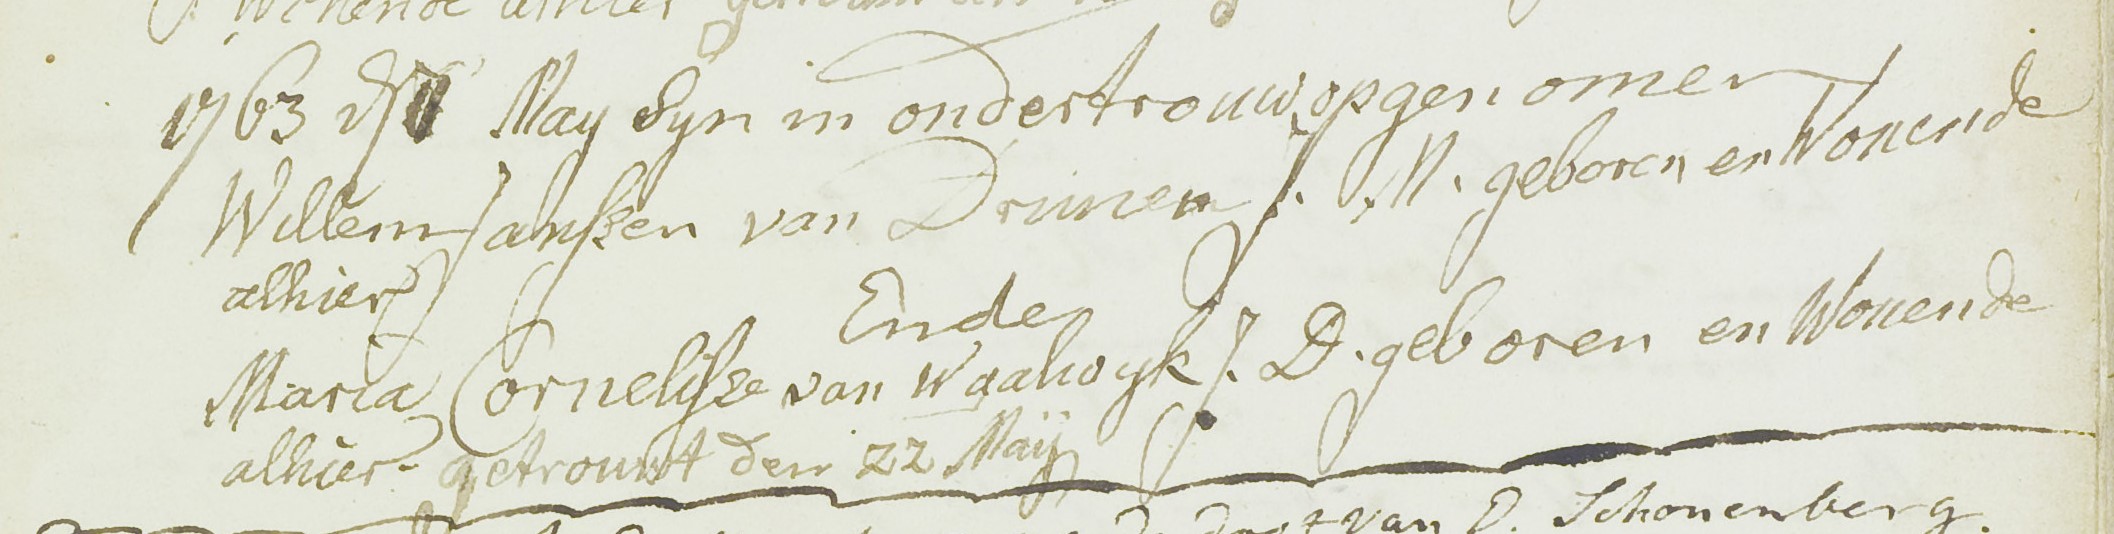 Wonende alhier
1763 d 7 May Syn in ondertrouw opgenomen
Willem Janssen van Drunen J. M. geboren en Wonende
alhier
Ende
Maria Cornelisse van Waalwyk J. D. geboren en Wonende
alhier - getrouwt den 22 Maÿ
van D. Schonenberg.